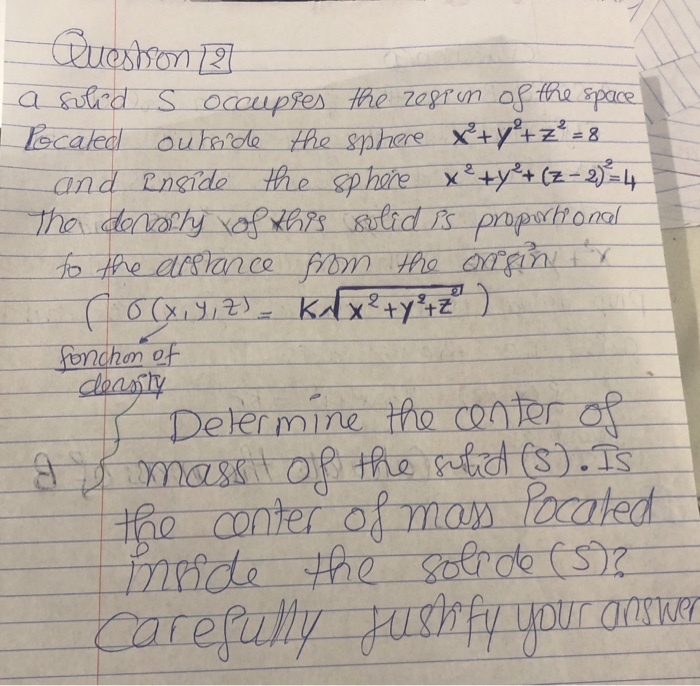 Question [2]
a solid S occupies the region of the space
located outside the sphere x²+y²+z²=8
and inside the sphere x²+y²+(z-2)²=4
The density of this solid is proportional
to the distance from the origin
( σ(x,y,z) = K√x²+y²+z² )
fonction of
density
Determine the center of
mass of the solid (S). Is
the center of mass located
inside the solide (S)?
Carefully justify your answer